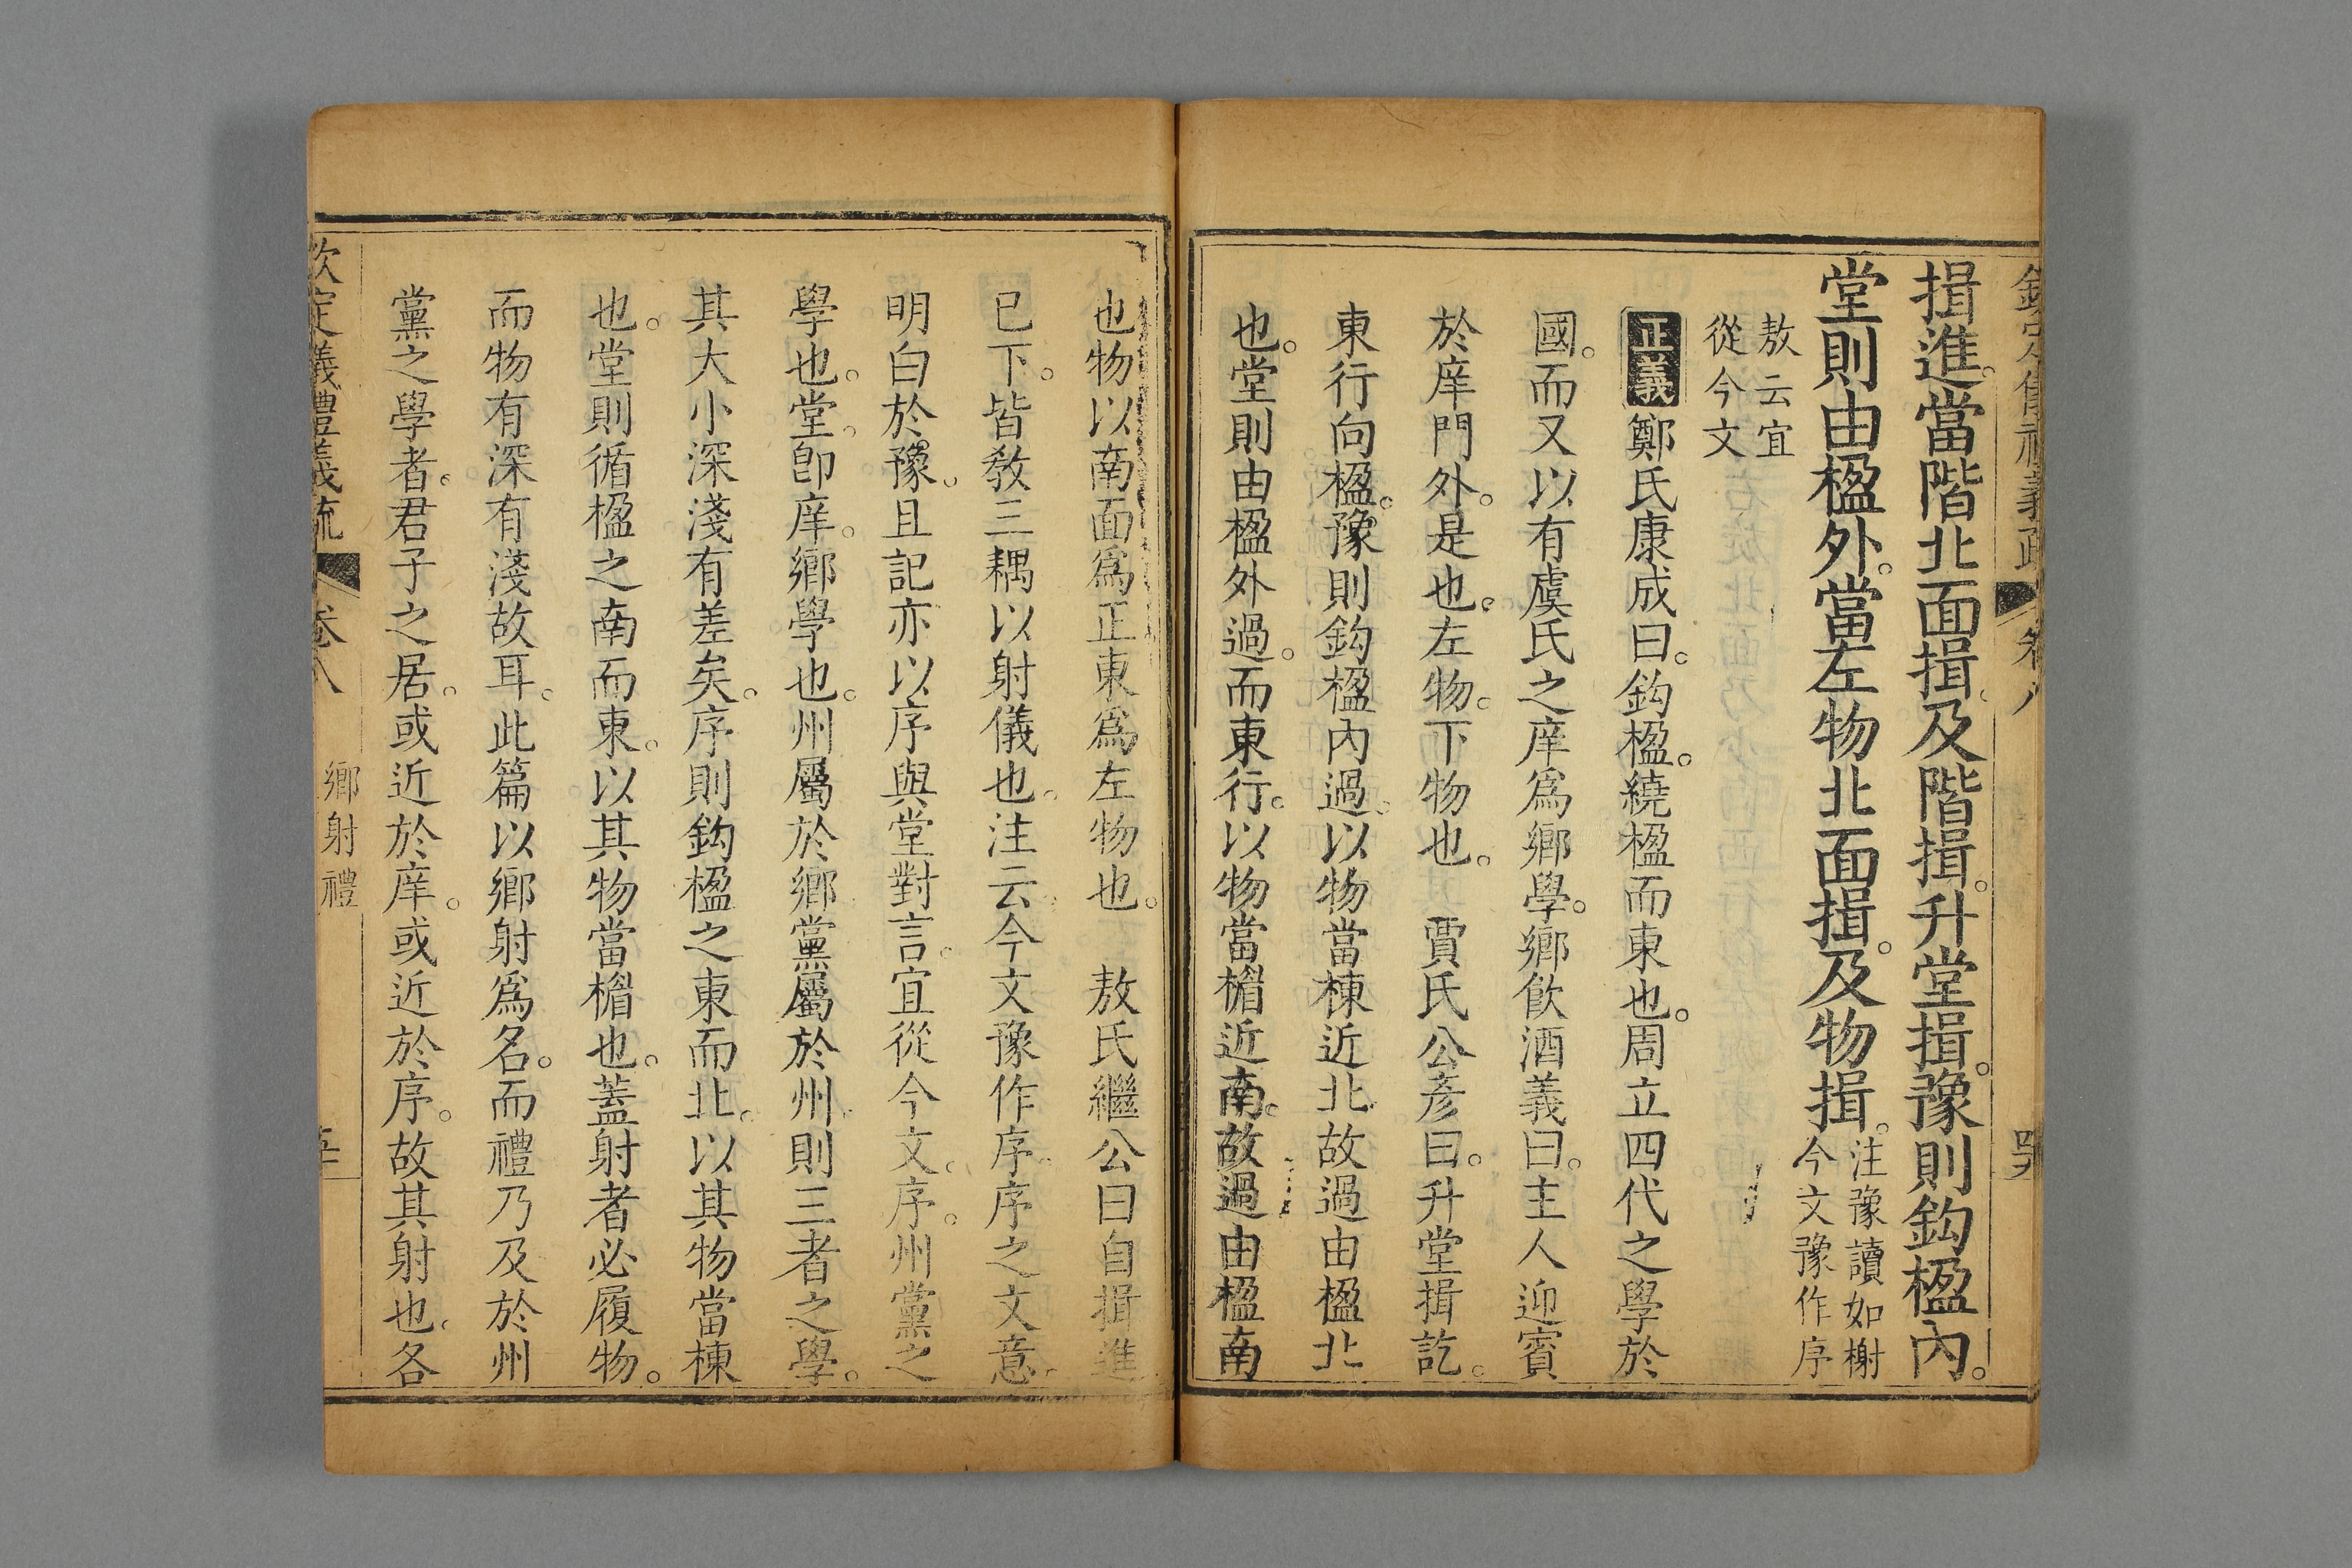 揖進。當階北面揖。及階揖。升堂揖。豫則鈎楹內。
堂則由楹外。當左物北面揖。及物揖。
注豫讀如榭
今文豫作序
敖云宜
從今文
正義鄭氏康成曰。鈎楹。繞楹而東也。周立四代之學於
國。而又以有虞氏之庠爲鄉學。鄉飲酒義曰。主人迎賓
於庠門外。是也。左物。下物也。 賈氏公彥曰。升堂揖訖。
東行向楹。豫則鈎楹內過。以物當棟近北。故過由楹北
也。堂則由楹外過。而東行。以物當楣近南。故過由楹南
也物以南面爲正東爲左物也。 敖氏繼公曰自揖進
已下。皆敎三耦以射儀也。注云。今文豫作序。序之文意。
明白於豫。且記亦以序與堂對言。宜從今文。序。州黨之
學也。堂。卽庠。鄉學也。州屬於鄉黨屬於州。則三者之學。
其大小深淺有差矣。序則鈎楹之東而北。以其物當棟
也。堂則循楹之南而東。以其物當楣也。蓋射者必履物。
而物有深有淺故耳。此篇以鄉射爲名。而禮乃及於州
黨之學者。君子之居。或近於庠。或近於序。故其射也。各
欽定儀禮義疏 卷八 鄉射禮